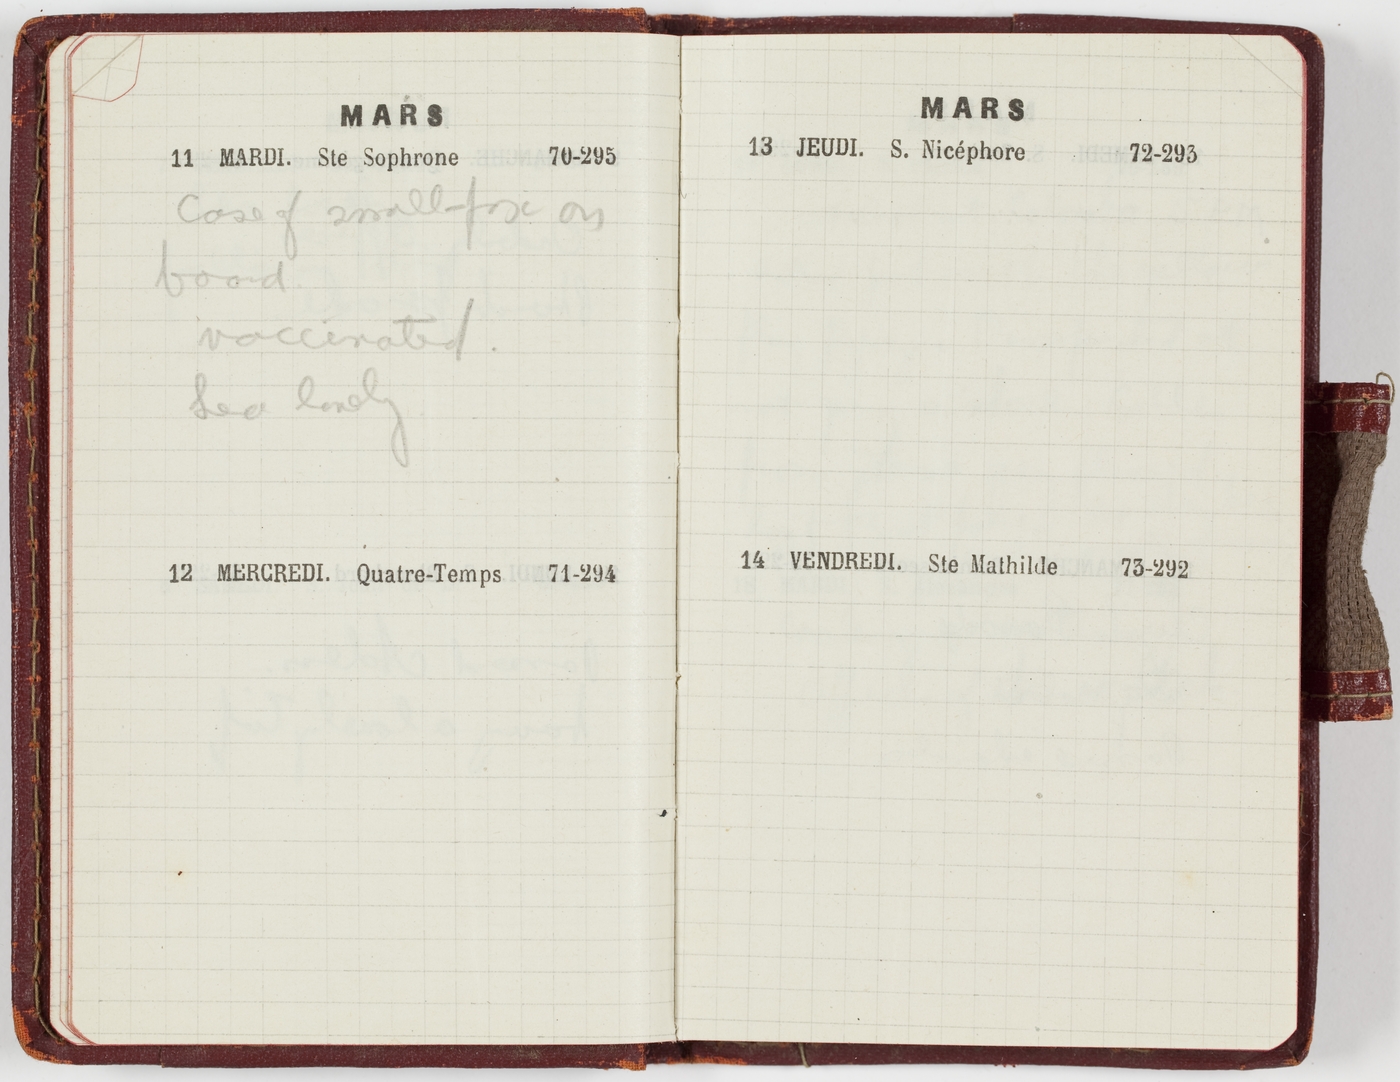 MARS
11 MARDI. Ste Sophrone 70-295
Case of small-pox on
board
vaccinated.
Sea lovely
12 MERCREDI. Quatre-Temps 71-294
MARS
13 JEUDI. S. Nicéphore 72-293
14 VENDREDI. Ste Mathilde 73-292